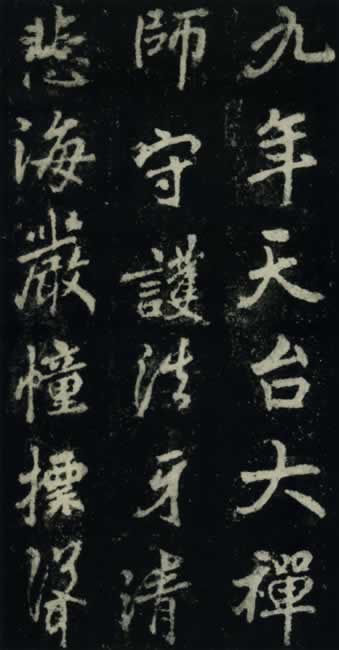 九年天台大禪
師守護法牙清
悲海嚴幢摽